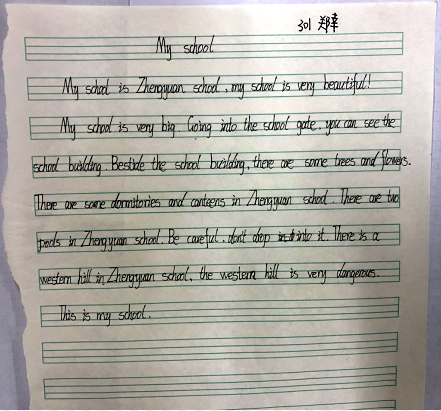 301 郑幸
My school
My school is Zhengyuan school, my school is very beautiful!
My school is very big. Going into the school gate, you can see the
school building. Bestide the school building, there are some trees and flowers.
There are some dormitories and canteens in Zhengyuan school. There are two
pools in Zhengyuan school. Be careful, don't drop into it. There is a
western hill in Zhengyuan school, the western hill is very dangerous.
This is my school.